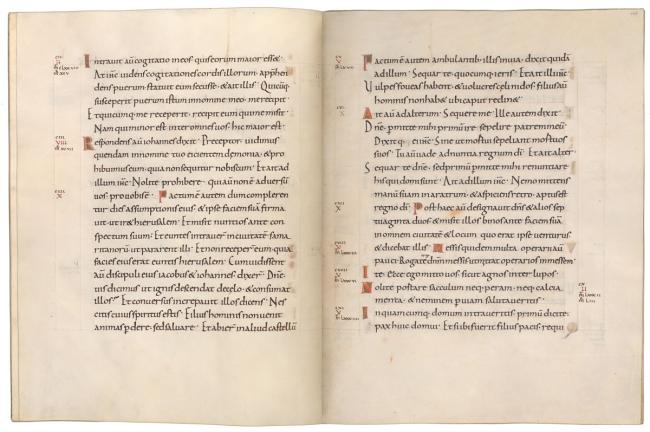 Intravit au cogitatio in eos quis eorum maior esse&
At ihc videns cogitationes cordis illorum. appraehen
dens puerum statuit eum secus se. & ait illis. Quicuq
susceperit puerum istum in nomine meo. me recepit
Et quicumq me receperit. recipit eum qui me misit
Nam qui minor est inter omnes vos. hic maior est.
Respondens au iohannes dixit. Preceptor. vidimus
quendam in nomine tuo eicientem demonia. & pro
hibuimus eum. quia non sequitur nobiscum. Et ait ad
illum ihc. Nolite prohibere. qui au non e adversu
vos. pro vobis e. Factum e autem dum compleren
tur dies assumptionis eius. & ipse faciem sua firma
vit. ut ir& hierusalem. Et misit nuntios ante con
spectum suum. Et euntes intraver in civitate sama
ritanoru. ut pararent illi. Et non receper eum. quia
facies eius erat euntis hierusalem. Cum vidissent
au discipuli eius iacobus & iohannes. dixer. Dne
vis dicimus ut ignis descendat de celo. & consumat
illos. Et conversus increpavit illos dicens. Nes
citis cuius spiritus estis. Filius hominis non venit
animas perdere. sed salvare. Et abier in aliud castellu
Factum e autem ambulantib illis in via. dixit quida
ad illum. Sequar te quocumq ieris. Et ait illi ihc.
Vulpes foveas habent. & volucres celi nidos. filius au
hominis non hab& ubi caput reclin&.
Ait au ad alterum. Sequere me. Ille autem dixit.
Dne. pmitte mihi primu ire. sepelire patrem meu.
Dixitq ei ihc. Sine ut mortui sepeliant mortuos
suos. Tu au vade adnuntia regnum di. Et ait alter.
Sequar te dne. sed primu pmitte mihi renuntiare
his qui domi sunt. Ait ad illum ihc. Nemo mittens
manu sua in aratrum. & aspiciens retro. aptus est
regno di. Post haec au designavit dns & alios sep
tuaginta duos. & misit illos binos ante facie sua
in omnem civitate & locum. quo erat ipse venturus.
& dicebat illis. Messis quidem multa. operarii au
pauci. Rogate dnm messis. ut mittat operarios in messem.
Ite. Ecce ego mitto vos. sicut agnos inter lupos.
Nolite portare sacculum. neq peram. neq calcia
menta. & neminem p viam salutaveritis.
In quamcunq domum intraveritis. primu dicite.
pax huic domui. Et si ibi fuerit filius pacis. requi